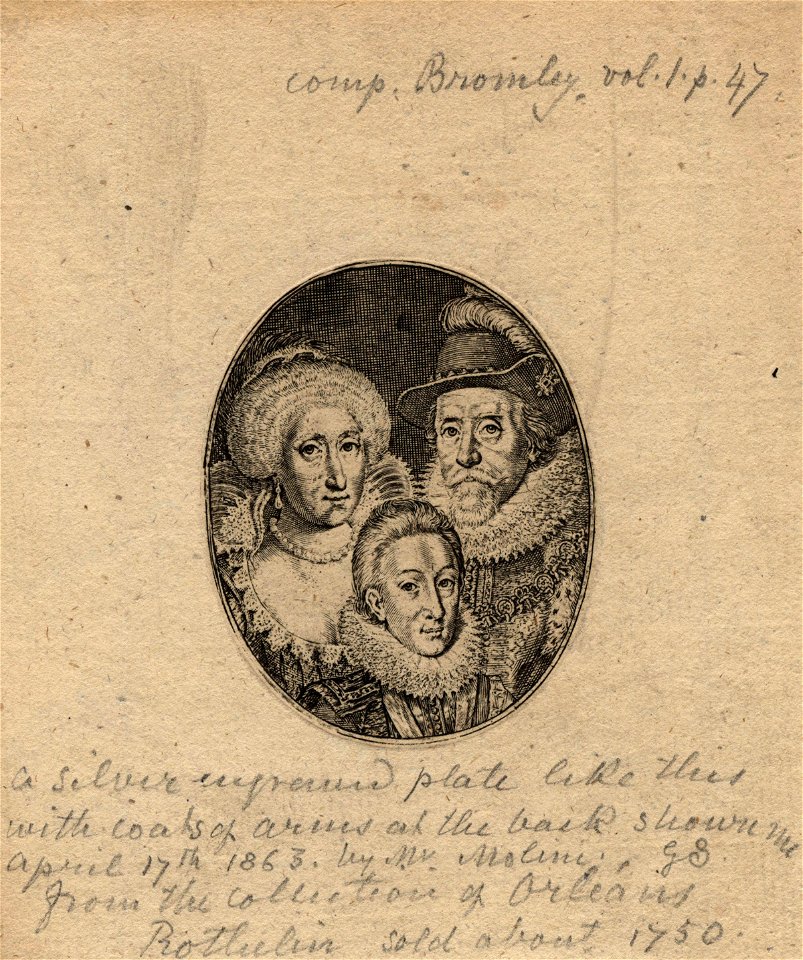 comp. Bromley. vol. 1. p. 47.
a silver engraved plate like this
with coats of arms at the back. shown me
april 17th 1863. by Mr Molini., GS.
from the collection of Orleans
Rothelin sold about 1750.